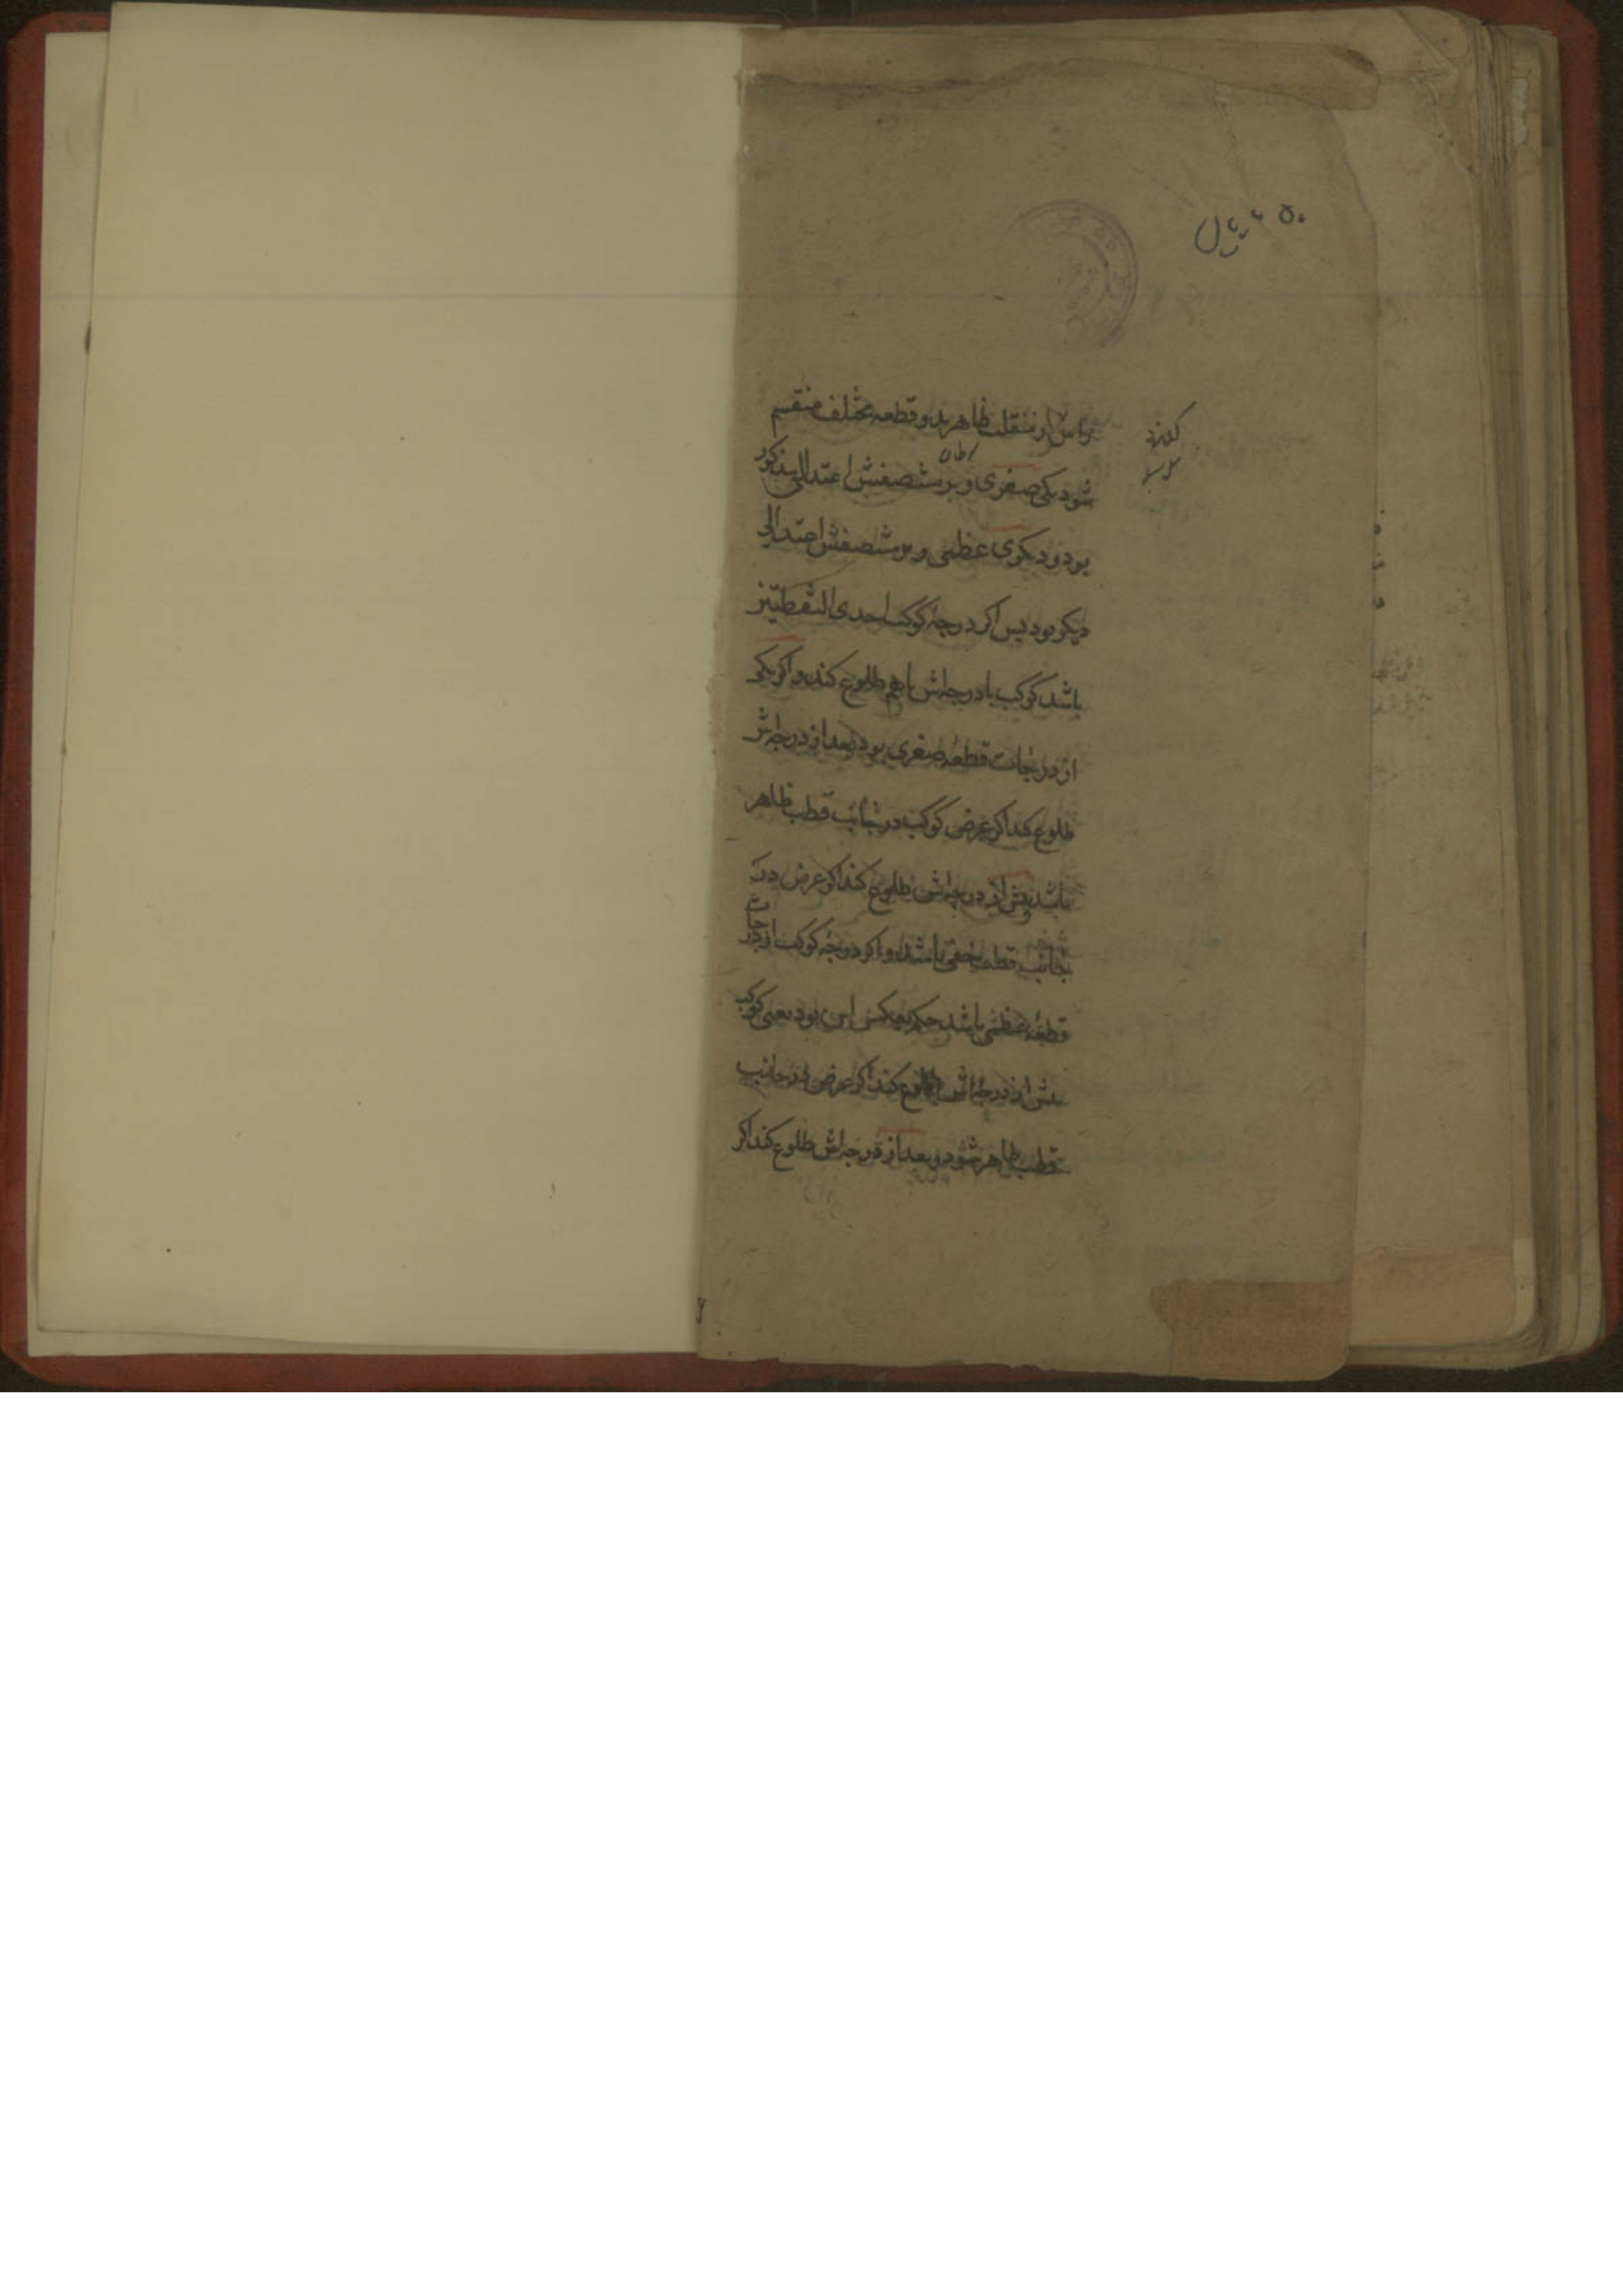 راس از منقلب ظاهر بدو قطعه مختلف منقسم
شود یکی صغری و برمنتصفش اعتدالی مذکور
بود و دیکری عظمی و برمنتصفش اعتدالی
دیکر بود پس اکر درجهٔ کوکب احدی النقطتین
باشد کوکب با درجه‌اش باهم طلوع کند و اکر یکی
از درجات قطعهٔ صغری بود بعد از درجه‌اش
طلوع کند اکر عرض کوکب در جانب قطب ظاهر
باشد پیش از درجه‌اش طلوع کند اکر عرض در
جانب قطب خفی باشد و اکر درجهٔ کوکب از درجات
قطعهٔ عظمی باشد حکم بعکس این بود یعنی کوکب
پیش از درجه‌اش طلوع کند اکر عرض در جانب
قطب ظاهر شود و بعد از درجه‌اش طلوع کند اکر